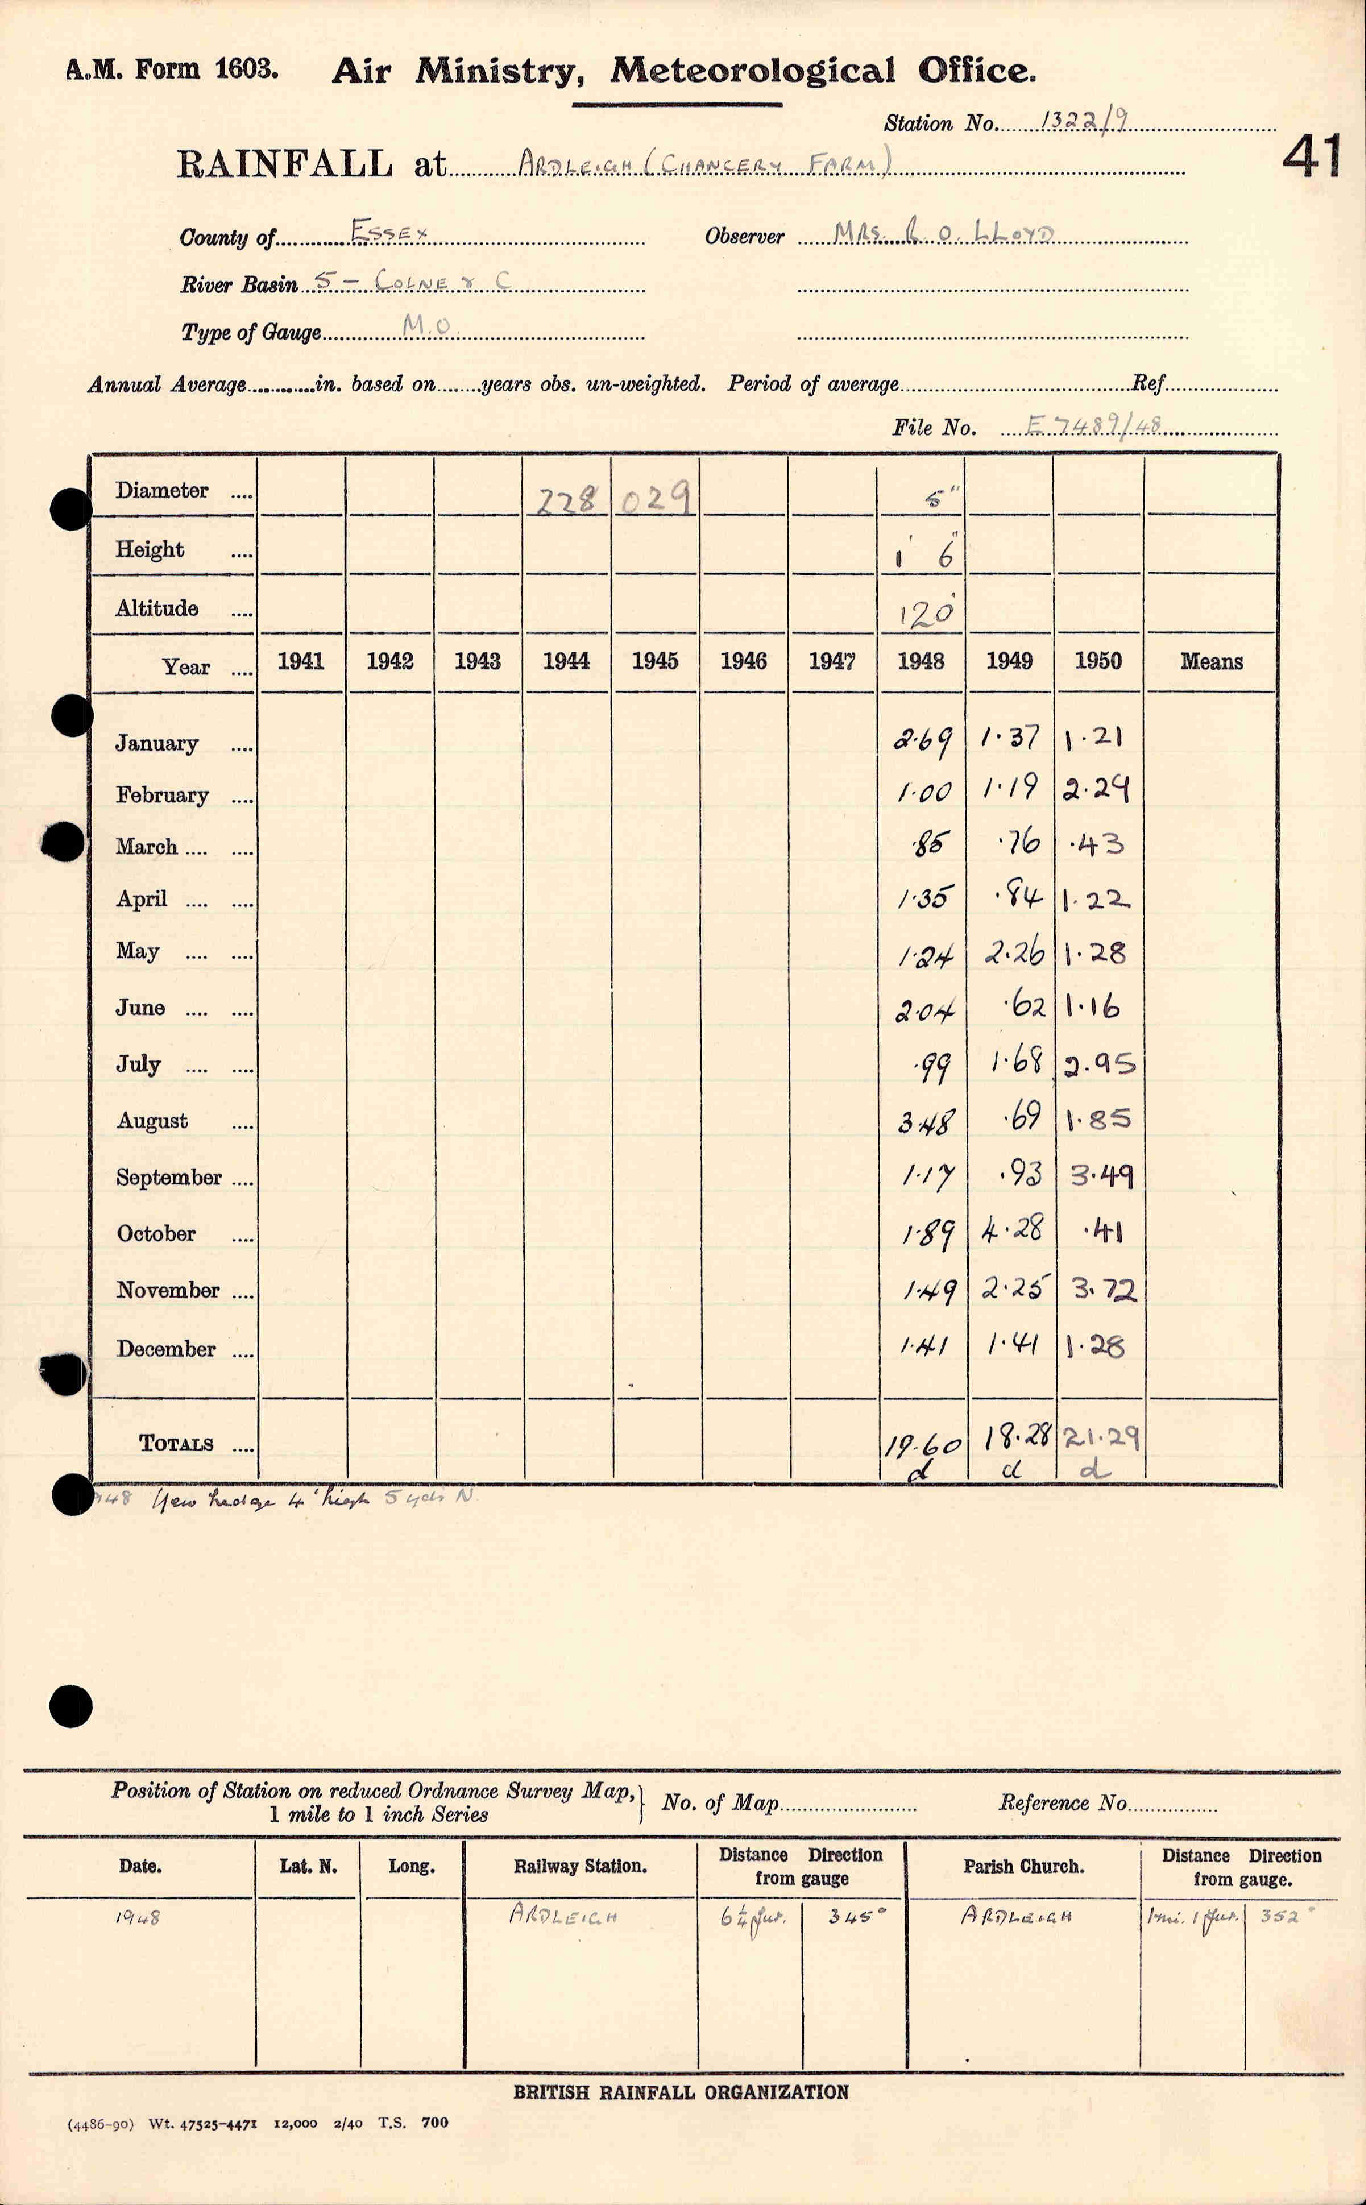 A.M. Form 1603. Air Ministry, Meteorological Office.
Station No. 1322/9
41
RAINFALL at ARDLEIGH (CHANCERY FARM)
County of ESSEX Observer MRS. R. O. LLOYD
River Basin 5 – COLNE & C
Type of Gauge M.O.
Annual Average in. based on years obs. un-weighted. Period of average Ref.
File No. E 7489/48
Diameter 228 029 5"
Height 1' 6"
Altitude 120'
Year 1941 1942 1943 1944 1945 1946 1947 1948 1949 1950 Means
January 2.69 1.37 1.21
February 1.00 1.19 2.29
March .85 .76 .43
April 1.35 .84 1.22
May 1.24 2.26 1.28
June 2.04 .62 1.16
July .99 1.68 2.95
August 3.48 .69 1.85
September 1.17 .93 3.49
October 1.89 4.28 .41
November 1.49 2.25 3.72
December 1.41 1.41 1.28
TOTALS 19.60 18.28 21.29
d d d
48 Yew hedge 4' high 5 yds N.
Position of Station on reduced Ordnance Survey Map,} No. of Map Reference No.
1 mile to 1 inch Series
Date. Lat. N. Long. Railway Station. Distance Direction from gauge Parish Church. Distance Direction from gauge.
1948 ARDLEIGH 6¼ fur. 345° ARDLEIGH 1 mi. 1 fur. 352°
BRITISH RAINFALL ORGANIZATION
(4486-90) Wt. 47525-4471 12,000 2/40 T.S. 700